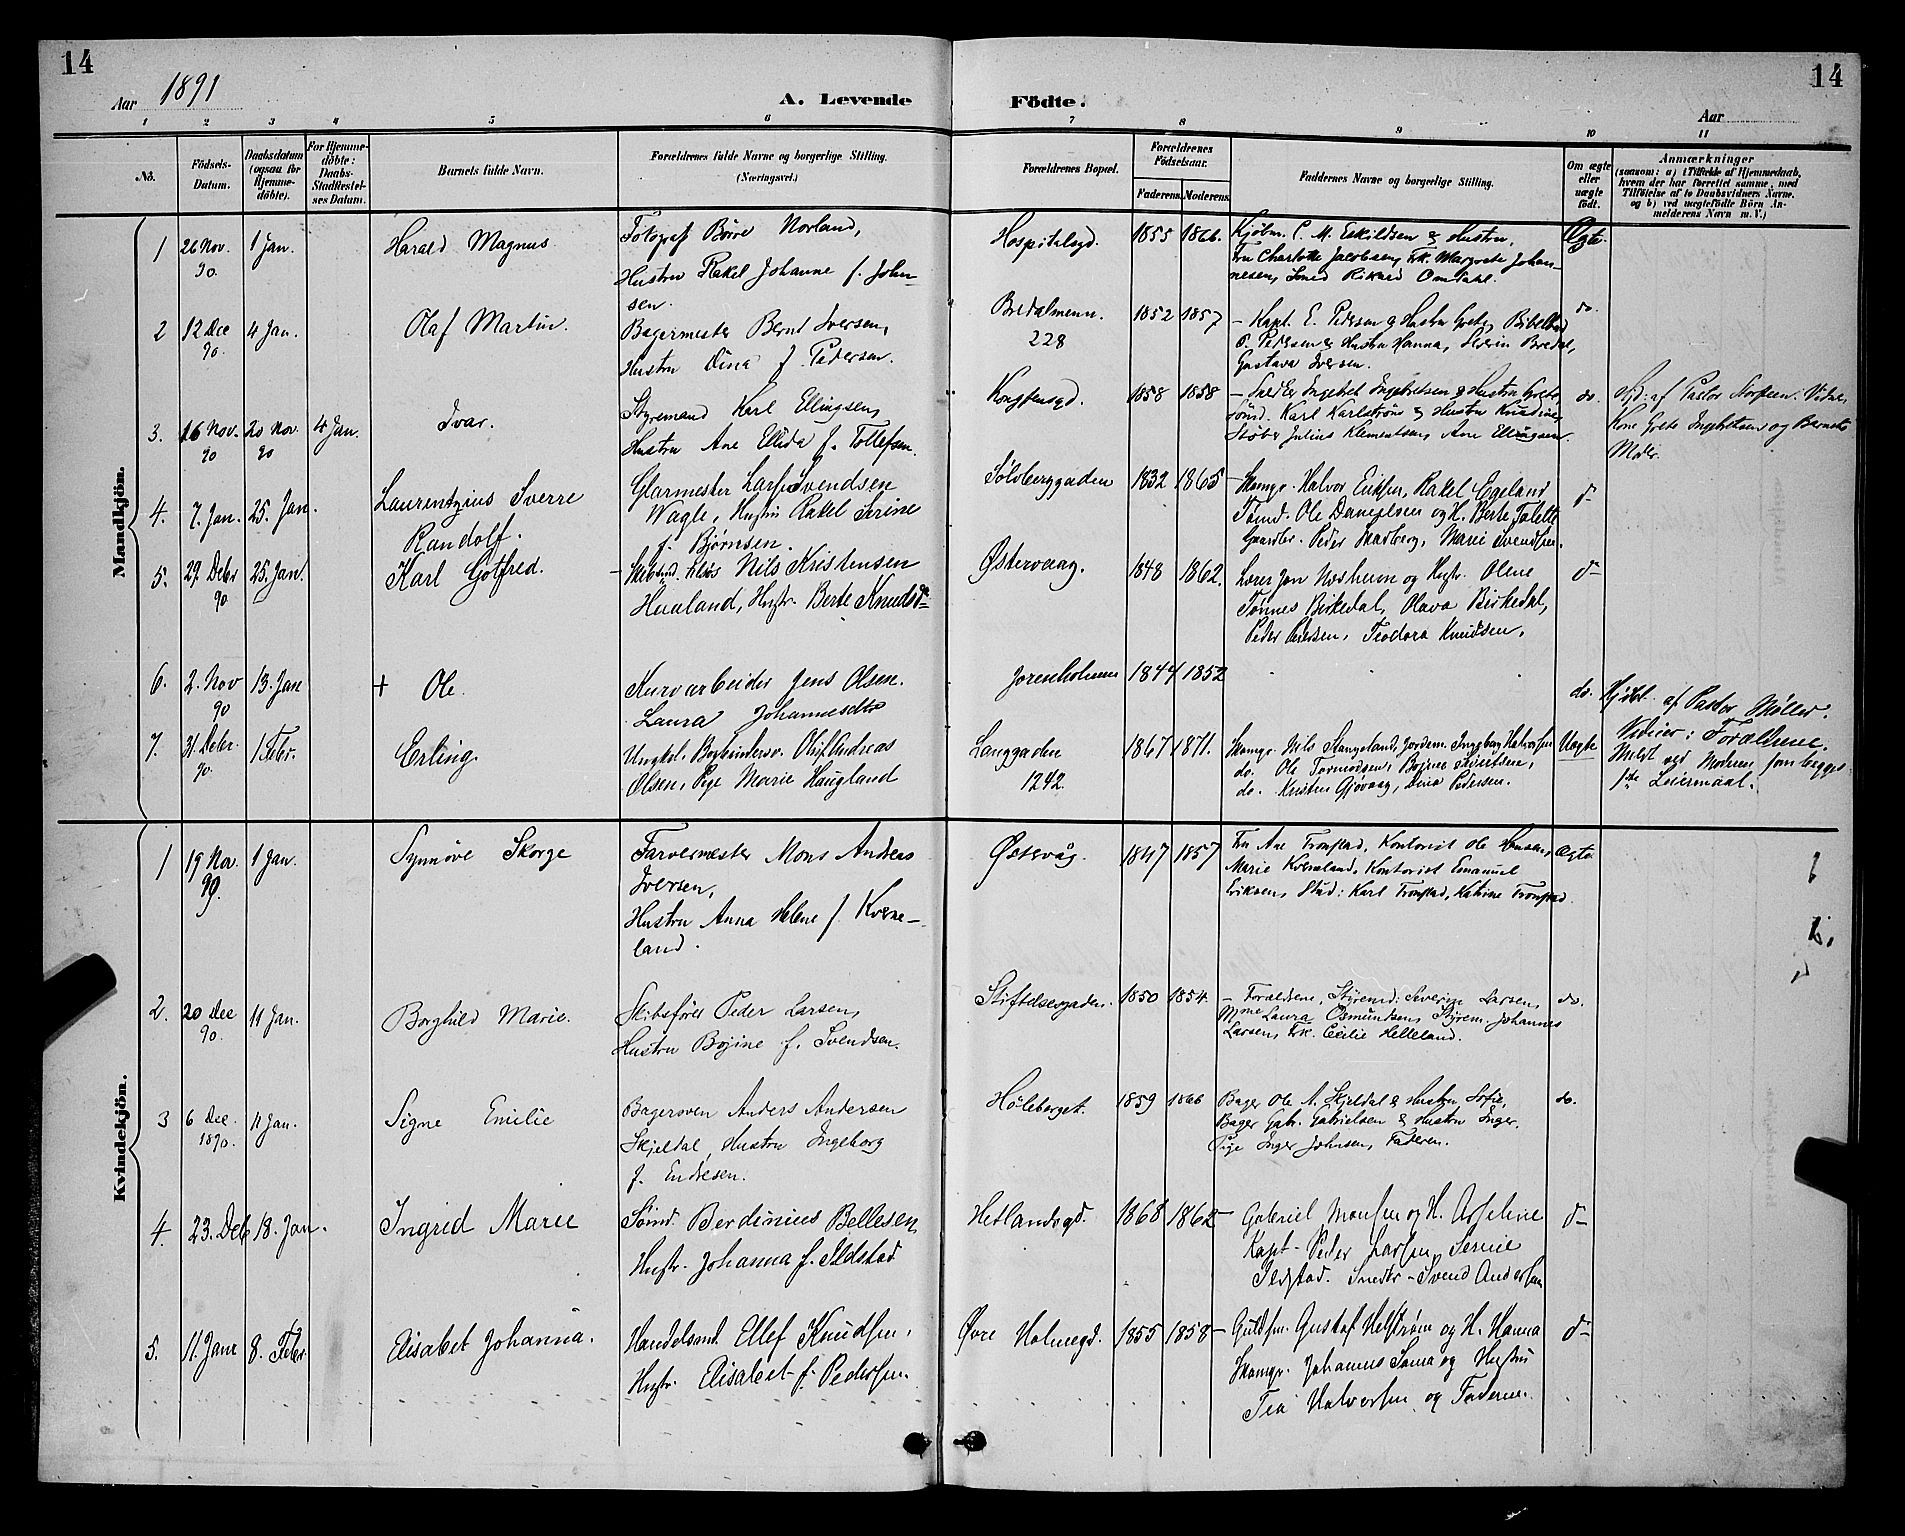 14
14
Aar 1891
A. Levende Fødte.
Aar
1 2 3 4 5 6 7 8 9 10 11
No.
Fødsels-Datum.
Daabsdatum (ogsaa for Hjemmedøbte).
For Hjemmedøbte: Daabs-Stadfæstelses Datum.
Barnets fulde Navn.
Forældrenes fulde Navne og borgerlige Stilling.
(Næringsvei.)
Forældrenes Bopæl.
Forældrenes Fødselsaar.
Faderens. Moderens.
Faddernes Navne og borgerlige Stilling.
Om ægte eller uægte født.
Anmærkninger
(saasom: a) i Tilfælde af Hjemmedaab, hvem der har forrettet samme, med Tilføielse af to Daabsvidners Navne. og b) ved uegtefødte Børn Anmelderens Navn m. V.)
Mandkjøn.
1 26 Nov. 90. 1 Jan. Harald Magnus
Fotograf Børre Norland,
Hustru Rakel Johanne f. Johansen.
Hospitalsgd. 1855 1866.
Kjøbm. C. M. Eskildsen & Hustru,
Fru Charlotte Jacobsen, Frk. Margrete Johannesen, Smed Rikard Omdahl.
Ægte
2 12 Dec 90. 4 Jan. Olaf Martin.
Bagermester Bernt Iversen,
Hustru Dina f. Pedersen.
Bredalmenn. 228
1852 1857
– Kapt. E. Pedersen & Hustru Grete, Bibelbud
O. Pedersen & Hustru Hanna, Severin Bredal,
Gustava Iversen.
do.
3. 16 Nov. 90 20 Nov. 90 4 Jan. Ivar.
Styremand Karl Ellingsen,
Hustru Ane Elida f. Tollefsen.
Kongstensgd. 1858 1858
– Snedker Ingebret Ingebretsen & Hustru Grete,
Sömd. Karl Karlström & Hustru
Støber Julius Klementsen, Ane Ellingsen.
do.
Hjd. af Pastor Vidner
Kone Grete Ingebretsen og Barnets
Moder.
4. 7. Jan. 25. Jan. Laurentzius Sverre
Randolf.
Glarmester Lars Svendsen
Wagle, Hustru Rakel Serine
f. Bjørnsen.
Sølvberggaden 1832 1865
– Skomgr. Halvor Eriksen, Rakel Egeland
Tømd. Ole Danielsen og H. Berte Tolette
Gaardbr. Peder Skadberg, Marie Svendsen.
d–
5. 29. Decbr 90 25. Jan. Karl Gotfred.
– Skibstmd. Nils Kristensen
Huuland, Hustr. Berte Knudsd.
Østervaag. 1848 1862.
Lærer Jon Nosheim og Hustr. Olene
Tønnes Birkedal, Olava Birkedal,
Peder Pedersen, Teodora Knudsen.
d–
6. 2. Nov 90 13. Jan + Ole.
Kurvarbeider Jens Olsen.
Laura Johannesdtr
Jorenholmen 1844 1852
do. Hjdbt. af Pastor Møller.
Vidner: Forældrene.
7. 31 Decbr. 90. 1 Febr. Erling.
Ungkel. Olaf Andreas
Olsen, Pige Marie Haugland
Langgaden 1242.
1867 1871.
Skomgr. Nils Stangeland, Jordem. Ingeborg Halvorsen
do. Ole Tormodsen, Bojine Sivertsen,
do. Kristen Gjøvaag, Dina Pedersen.
Uægte
Meldt ved Moderen som begges
1ste Leiermaal.
Kvindekjøn.
1 19 Nov. 90. 1 Jan. Synnøve Skorge
Farvermester Mons Andreas
Iversen,
Hustru Anna Helene f. Kverneland.
Østervåg. 1847 1857
Fru Ane Tronstad, Kontorist Ole Hansen,
Marie Kverneland, Kontorist Emanuel
Eriksen, Stud: Karl Tronstad, Katrine Tronstad.
Ægte
2. 20 Dec 90. 11 Jan. Borghild Marie.
Skibsfører Peder Larsen,
Hustru Bojine f. Svendsen.
Stiftelsesgaden. 1850 1854.
– Forældrene, Styremd: Severin Larsen,
Mme Laura Osmundsen, Styrem. Johannes
Larsen, Frk. Cecilie Helleland.
do.
3 6 Dec. 1890. 11 Jan. Signe Emilie
Bagersven Anders Andersen
Skjeldal, Hustru Ingeborg
f. Endresen.
Høleberget. 1859 1866
Bager Ole A. Skjeldal & Hustru Sofie,
Bager Gabr. Gabrielsen & Hustru Inger,
Pige Inger Johnsen, Faderen.
do.
4. 23. Deb 18. Jan. Ingrid Marie
Sömd. Berdinius Bellesen,
Hustr. Johanna f. Ildstad
Hetlandsgd. 1868 1862
– Gabriel Monsen og H. Asseline
Kapt – Peder Larsen, Serine
Ildstad. Snedkr – Svend Andersen
d–
5. 11. Janr 8. Febr. Elisabet Johanna.
Handelsmd. Ellef Knudsen,
Hustr. Elisabet f. Pedersen.
Øvre Holmegd. 1855 1858
– Guldsm. Gustaf Helstrøm og H. Hanna
Skomgr. Johannes Soma og Hustru
Tea Halvorsen og Faderen.
d–